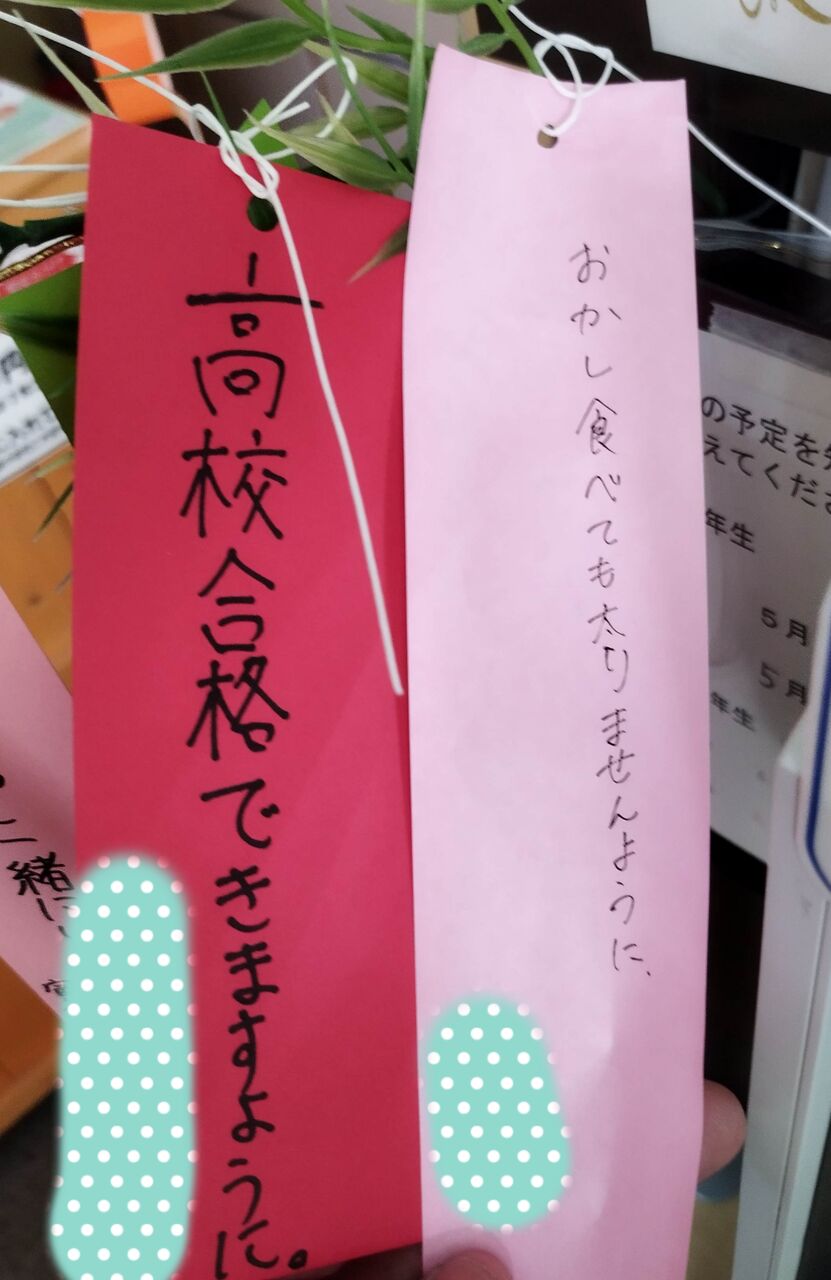 おかし食べても太りませんように、
高校合格できますように。
の予定を
えてくだ
年生
5月
5月
年生
緒に